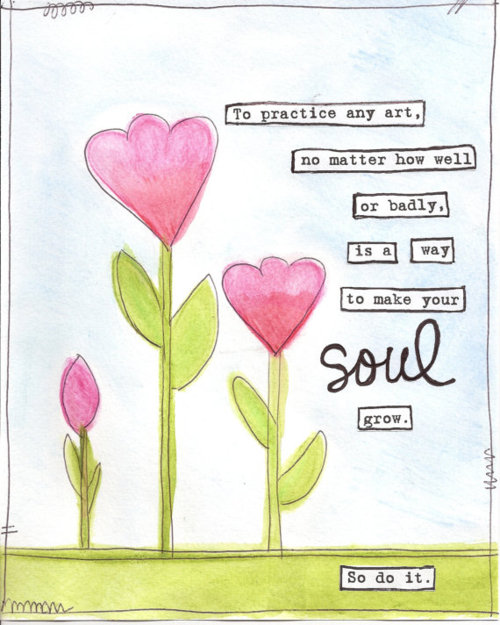 To practice any art,
no matter how well
or badly,
is a way
to make your
soul
grow.
So do it.